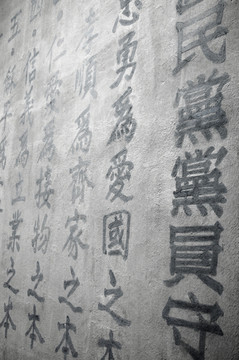 國民黨黨員守
忠勇為愛國之本
孝順為齊家之本
仁愛為接物之本
信義為立業之本
五·和平為